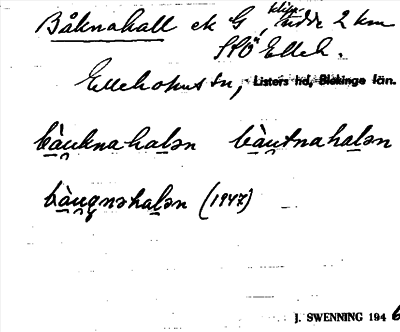 Båknahall ek G, klippudde 2 km
SSÖ Elleh.
Elleholms sn, Listers hd, Blekinge län.
bàuknahalən bàutnahalən
bàugnəhalən (1947)
J. SWENNING 1946